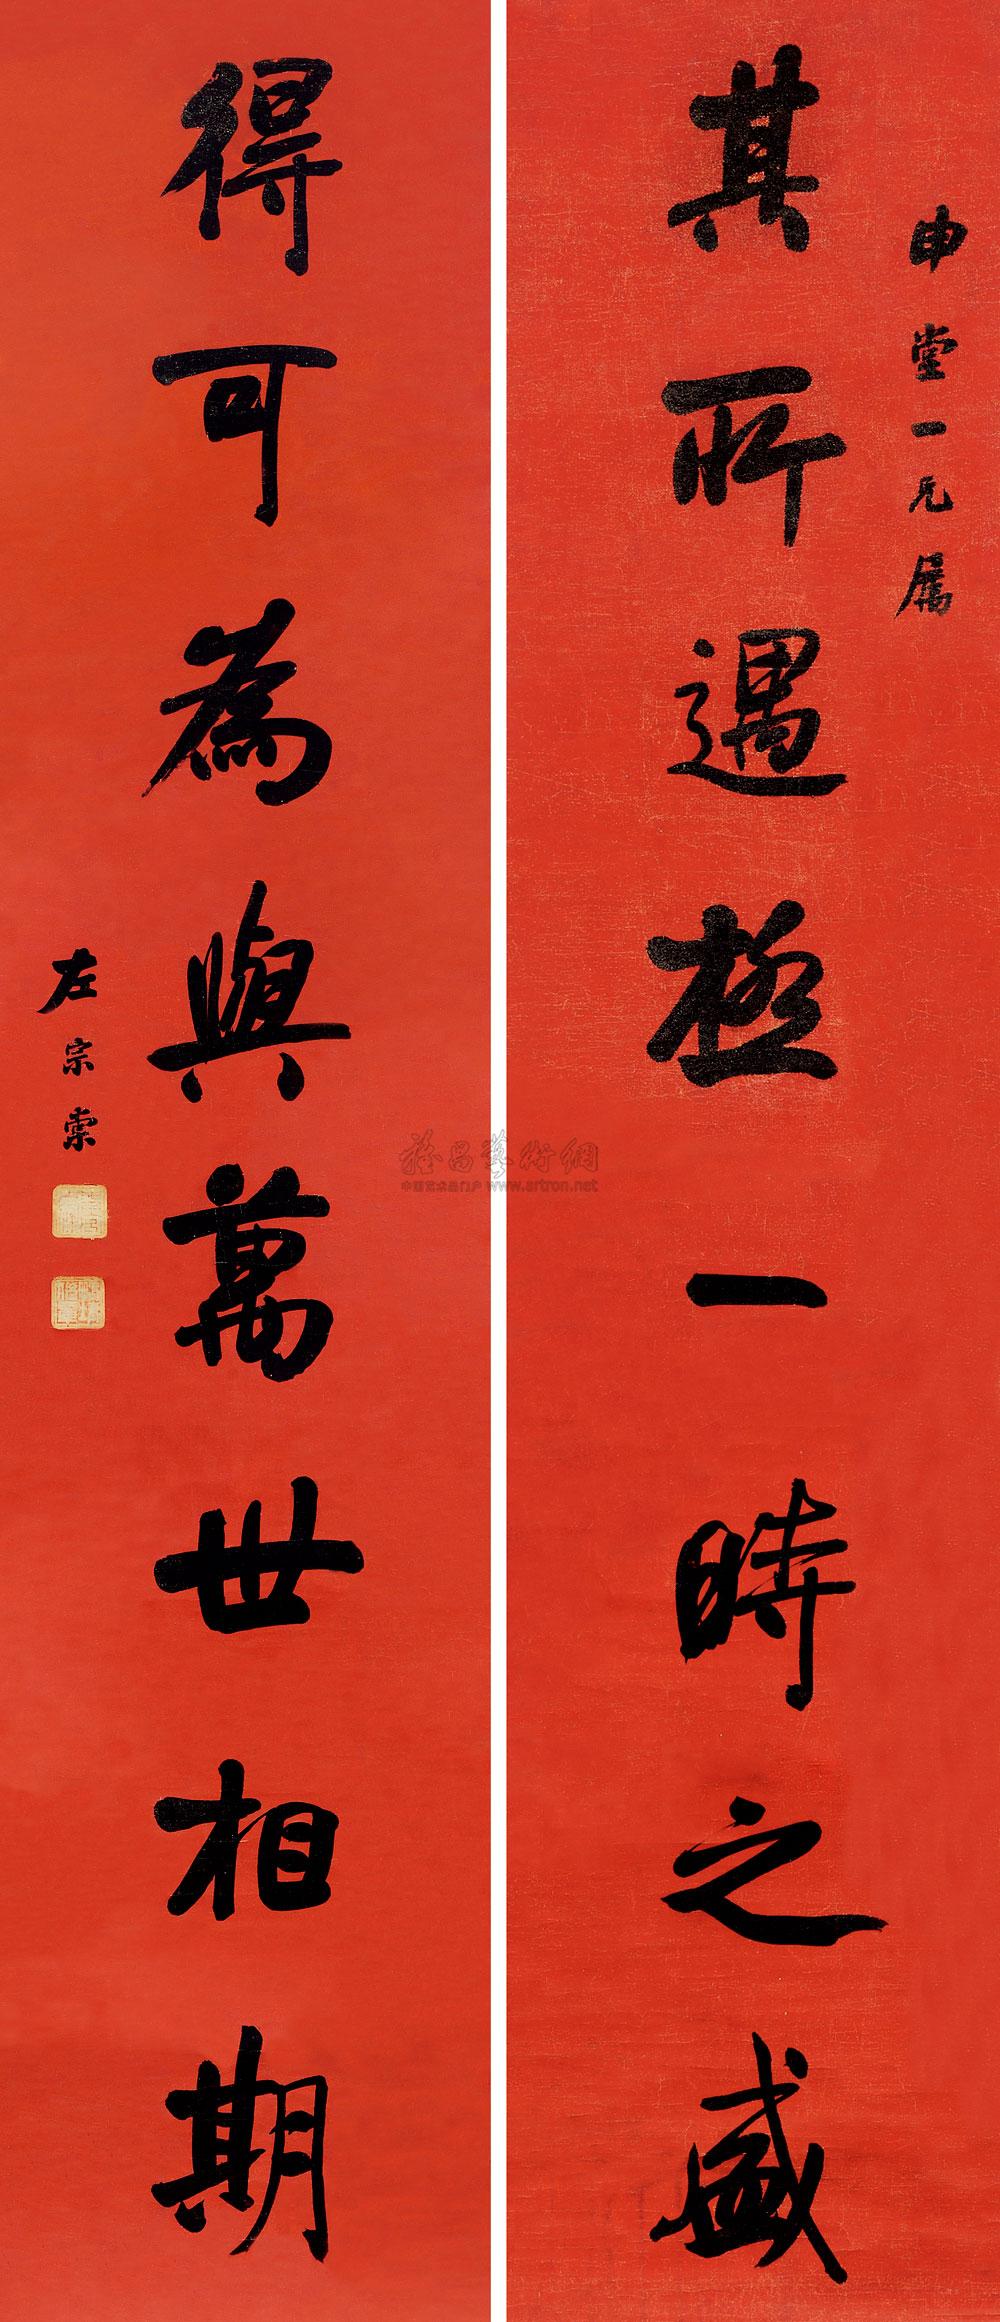 申堂一兄属
其所遇極一時之盛
得可為與萬世相期
左宗棠
雅昌藝術網
中国艺术品门户 www.artron.net